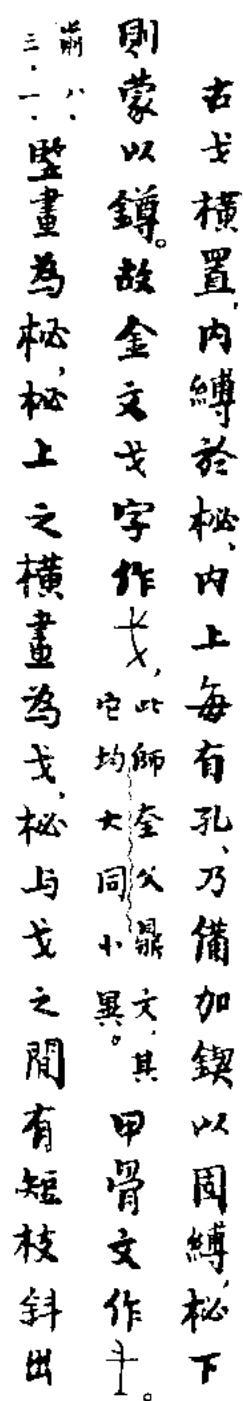 古戈橫置，内縛於柲，内上每有孔，乃備加鍥以固縛，柲下
則蒙以鐏。故金文戈字作，此師奎父鼎文，其它均大同小異。甲骨文作。
前八、三・一、豎畫為柲，柲上之橫畫為戈，柲与戈之間有短枝斜出